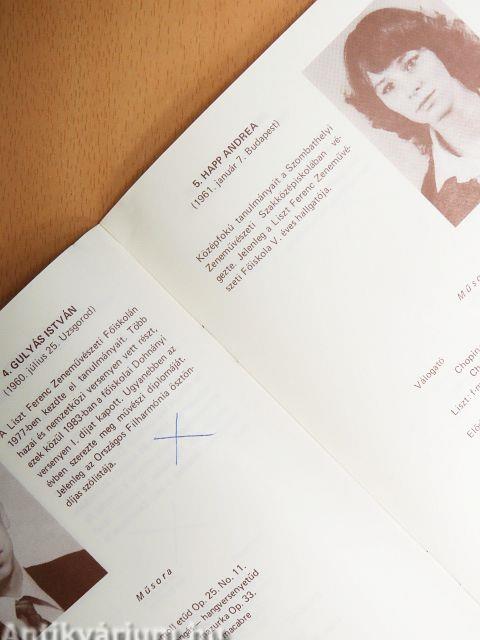 4. GULYÁS ISTVÁN
(1960. július 25. Uzsgorod)
A Liszt Ferenc Zeneművészeti Főiskolán
1977-ben kezdte el tanulmányait. Több
hazai és nemzetközi versenyen vett részt,
ezek közül 1983-ban a főiskolai Dohnányi
versenyen I. díjat kapott. Ugyanebben az
évben szerezte meg művészi diplomáját.
Jelenleg az Országos Filharmónia ösztön-
díjas szólistája.
Műsora
etűd Op. 25. No. 11.
hangversenyetűd
Op. 33.
5. HAPP ANDREA
(1961. január 7. Budapest)
Középfokú tanulmányait a Szombathelyi
Zeneművészeti Szakközépiskolában vé-
gezte. Jelenleg a Liszt Ferenc Zeneművé-
szeti Főiskola V. éves hallgatója.
Válogató
Chopin
Liszt:
Antikvárium.hu